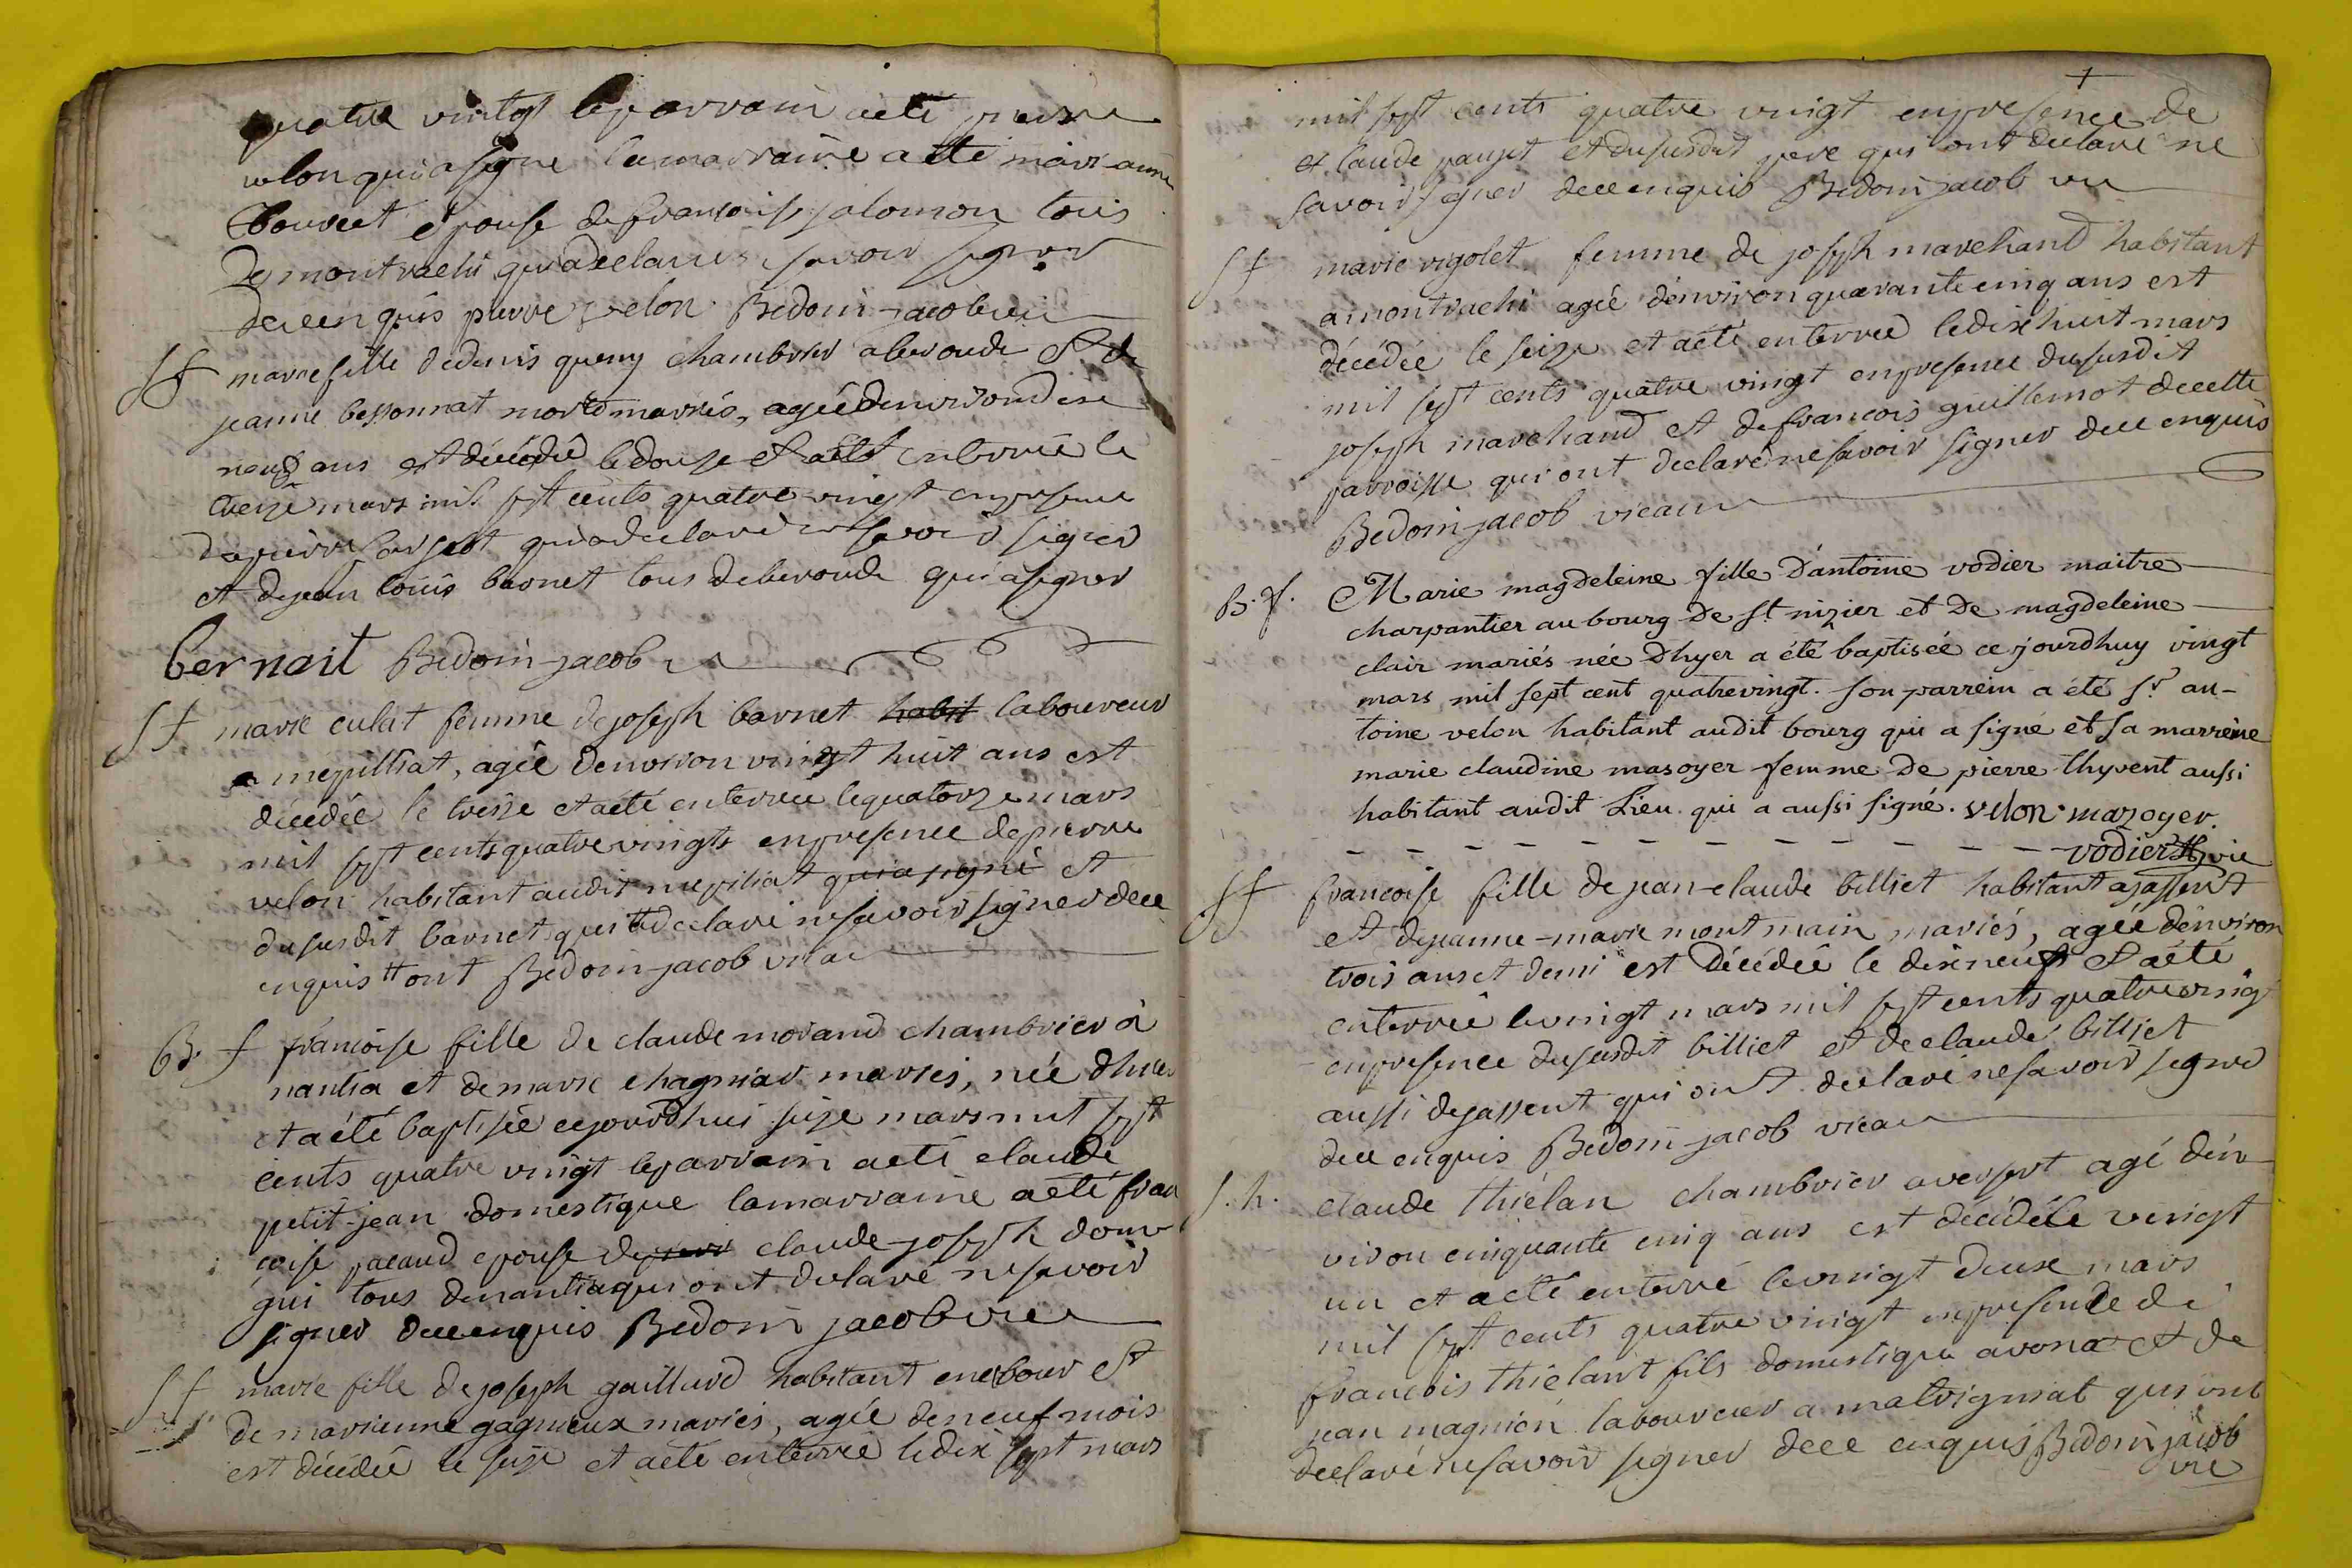 quatre vingt leparrain aété pierre
velon quia signe lamarraine a éte marianne
bouvret épouse defrançois salomon tous
De montrachi quiadeclaré savoir signer
deceenquis pierre velon Bedoin-jacob vic
Sf marie fille dedenis queny chambrier aberoude Et de
jeanne bessonnat morte mariés, agée denviron dix
neuf ans est décédée ledouze et aété enterrée le
treize mars mil sept cents quatre vingt enpresence
depierre qui a declaré ne savoir signer
et dejean louis barnet tous deberoude qui asigner
bernait Bedoin-jacob
Sf marie culat femme dejoseph barnet habit laboureur
a mepilliat, agée denviron vingt huit ans est
décédée le treize et aété enterrée lequatorze mars
mil sept cents quatre vingts enpresence depierre
velon habitant audit mepiliat quia signé et
dususdit barnet qui tt declaré nesavoir signer dece
enquis tt ont Bedoin-jacob vicai
B. f francoise fille de claude morand chambrier à
nantia et de marie chagniar mariés, née dhier
et aété baptisée cejourdhui seize mars mil sept
cents quatre vingt leparrain aété claude
petit-jean domestique lamarraine aété fran
coise pacaud epouse de claude-joseph dom
gui tous denantia qui ont declaré nesavoir
signer deceenquis Bedoin jacob vic
Sf marie fille dejoseph gaillard habitant enebour et
de marianne gagnieux mariés, agée deneuf mois
est décédée le seize et aété enterrée ledix sept mars
mil sept cents quatre vingt enpresence de
claude paujet et dususdit pere qui ont declaré ne
savoir signer deceenquis Bedoin jacob vic
Sf marie rigolet femme de joseph marchand habitant
amontrachi agée denviron quarante cinq ans est
décédée le seize et aété enterrée ledix huit mars
mil sept cents quatre vingt enpresence dususdit
joseph marchand et defrancois guillemot decette
parroisse qui ont declaré nesavoir signer dece enquis
Bedoin jacob vicaire
B. f. Marie magdeleine fille D'antoine vodier maitre
charpantier au bourg de st nizier et de magdeleine
clair mariés née Dhyer a été baptisée ce jourdhuy vingt
mars mil sept cent quatrevingt. son parrein a été sr an-
toine velon habitant audit bourg qui a signé et sa marreine
marie claudine masoyer femme de pierre thyvent aussi
habitant audit Lieu qui a aussi signé. velon. mazoyer.
vodier vic
Sf francoise fille de jean-claude billiet habitant ajassent
et dejeanne-marie montmain mariés, agée denviron
trois ans et demi est Décédée le dixneuf et aété
enterrée levingt mars mil sept cents quatre vingt
enpresence dususdit billiet et declaude billiet
aussi dejassent qui ont declaré nesavoir signer
dece enquis Bedoin-jacob vicai
S. h. claude thiélan chambrier averfert agé den
viron cinquante cinq ans est décédé le vingt
un et aété enterré levingt deux mars
mil sept cents quatre vingt enpresence de
francois thiélant fils domestique avona et de
jean magnien laboureur a malvigniat qui ont
declaré nesavoir signer dece enquis Bedoin jacob
vic